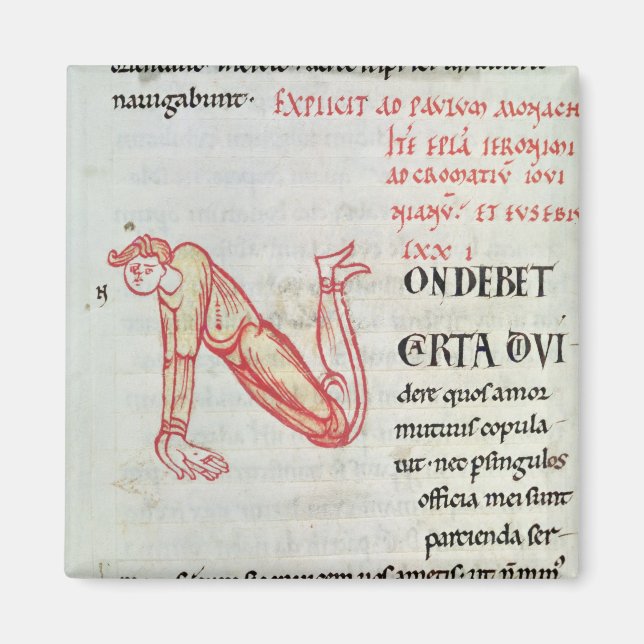 nauigabunt. EXPLICIT AD PAULUM MONACH
ITĒ EPLA IERONIMI
AD CROMATIŪ IOUI
NIANŪ. ET EUSEBIU
LXX I
N
ON DEBET
CARTA DIUI
dere quos amor
mutuus copula
uit · nec p singulos
officia mei sunt
parcienda ser